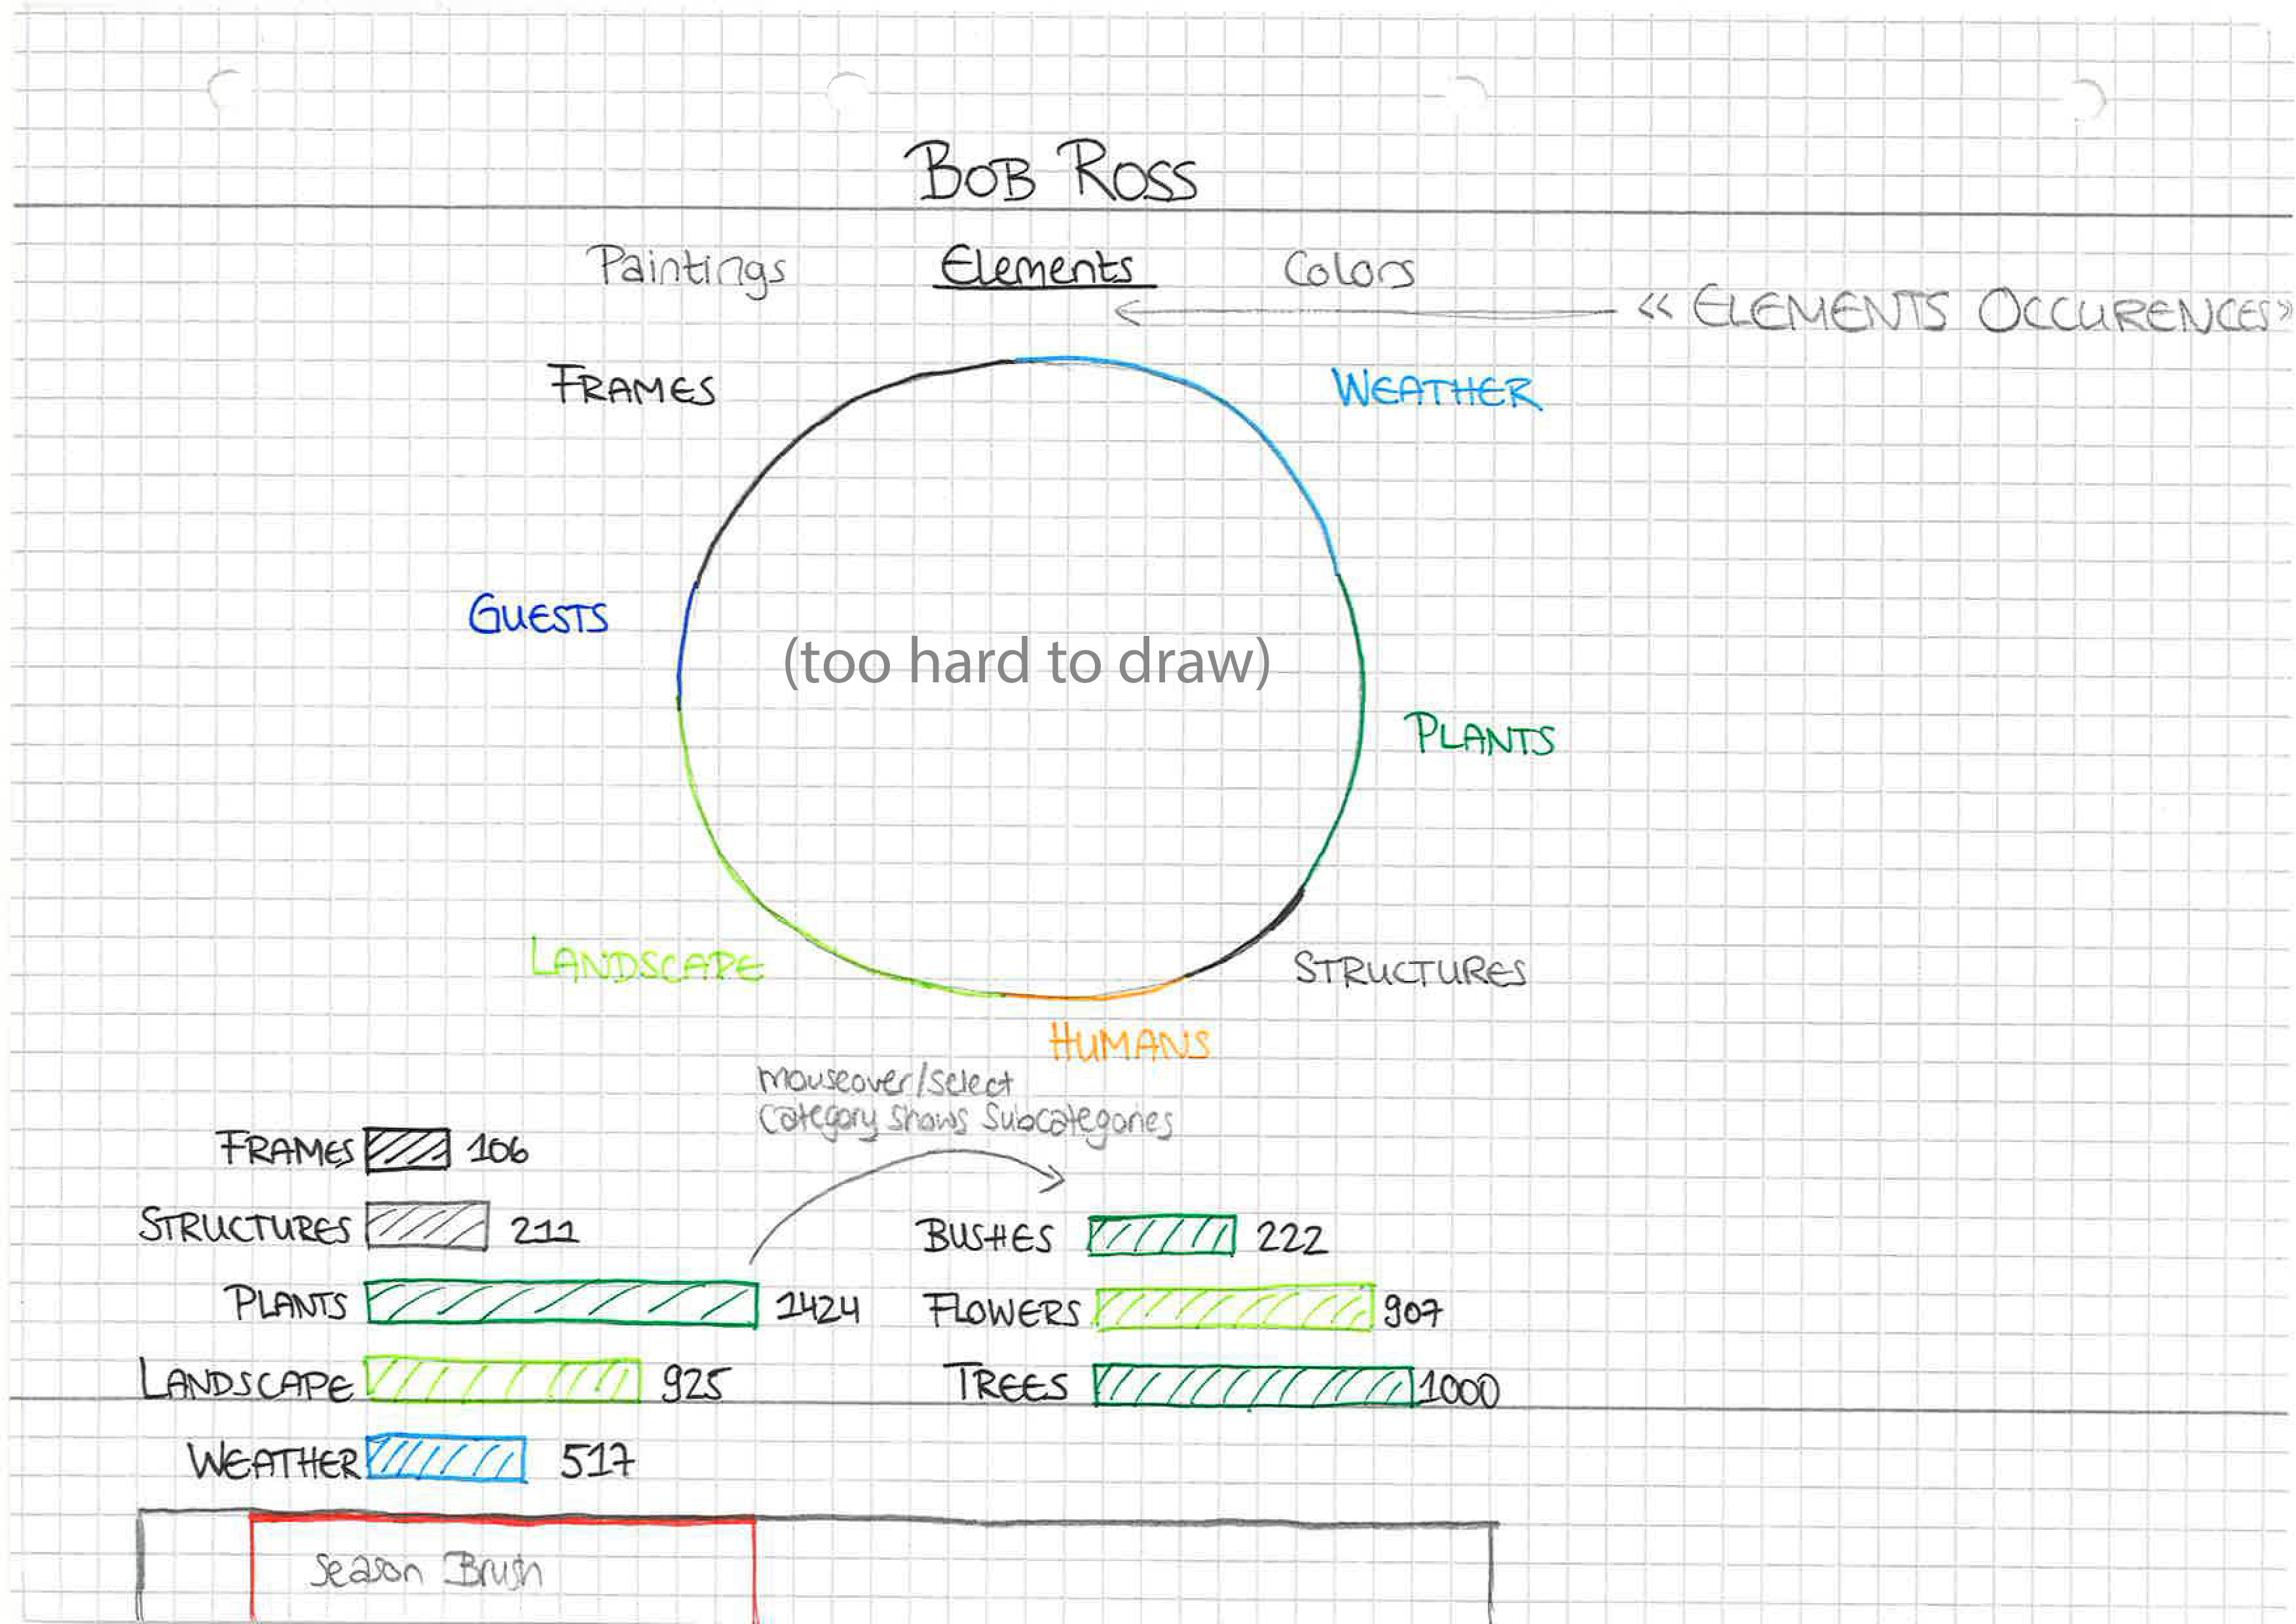 BOB ROSS
Paintings Elements Colors
<< ELEMENTS OCCURENCES >>
FRAMES
WEATHER
GUESTS
(too hard to draw)
PLANTS
LANDSCAPE
STRUCTURES
HUMANS
mouseover/select
Category shows Subcategories
FRAMES 106
STRUCTURES 211
BUSHES 222
PLANTS 1424
FLOWERS 907
LANDSCAPE 925
TREES 1000
WEATHER 517
Season Brush